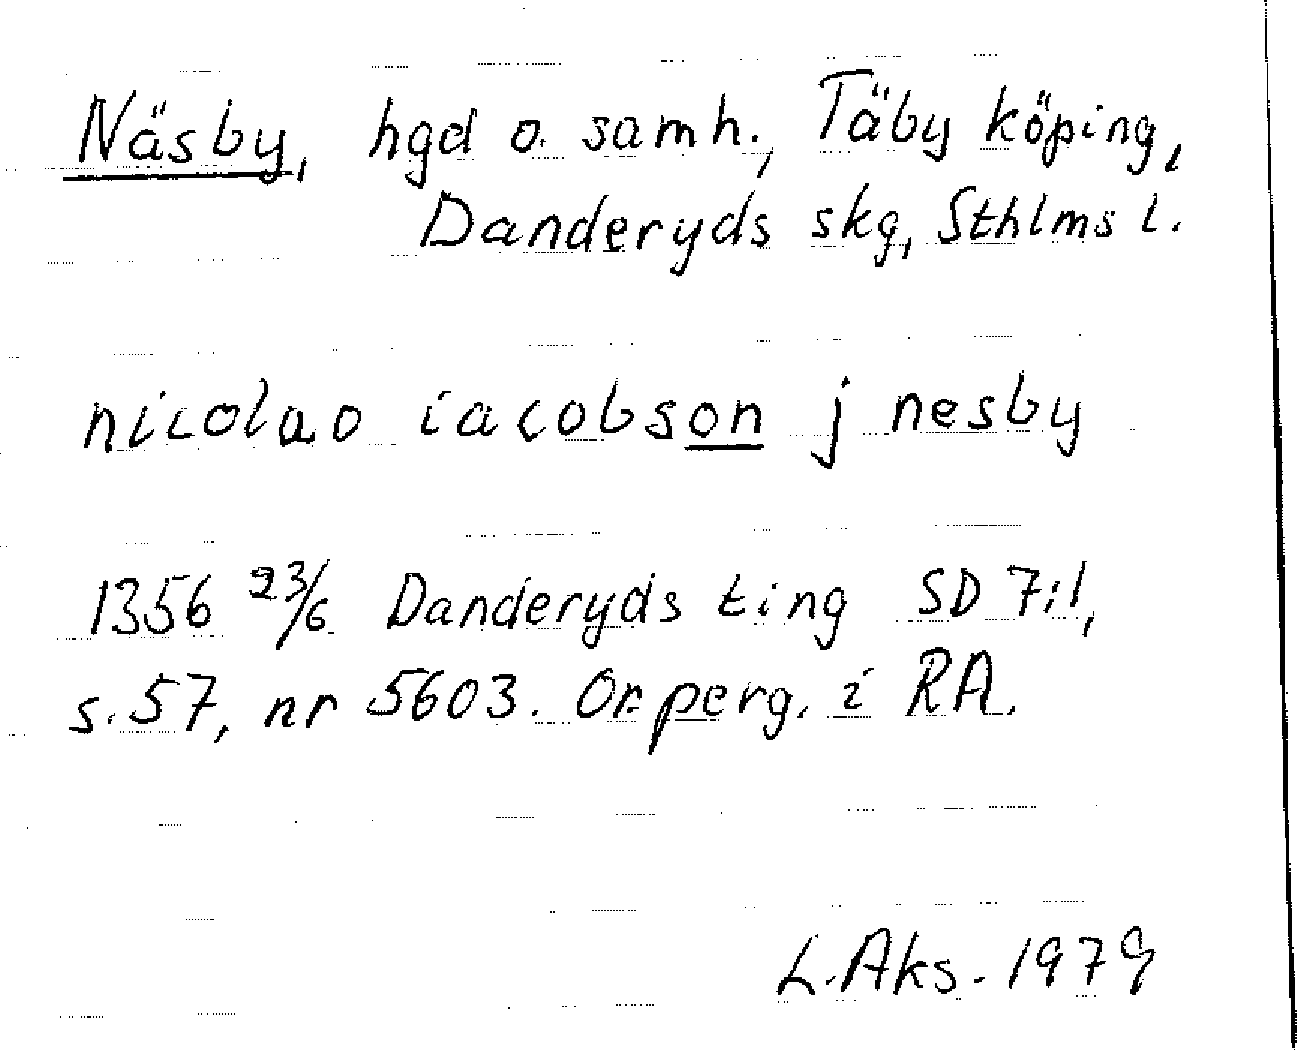 Näsby, hgd o. samh., Täby köping,
Danderyds skg, Sthlms l.
nicolao iacobson j nesby
1356 23/6 Danderyds ting SD 7:1,
s. 57, nr 5603. Or. perg. i RA.
L. Aks. 1979